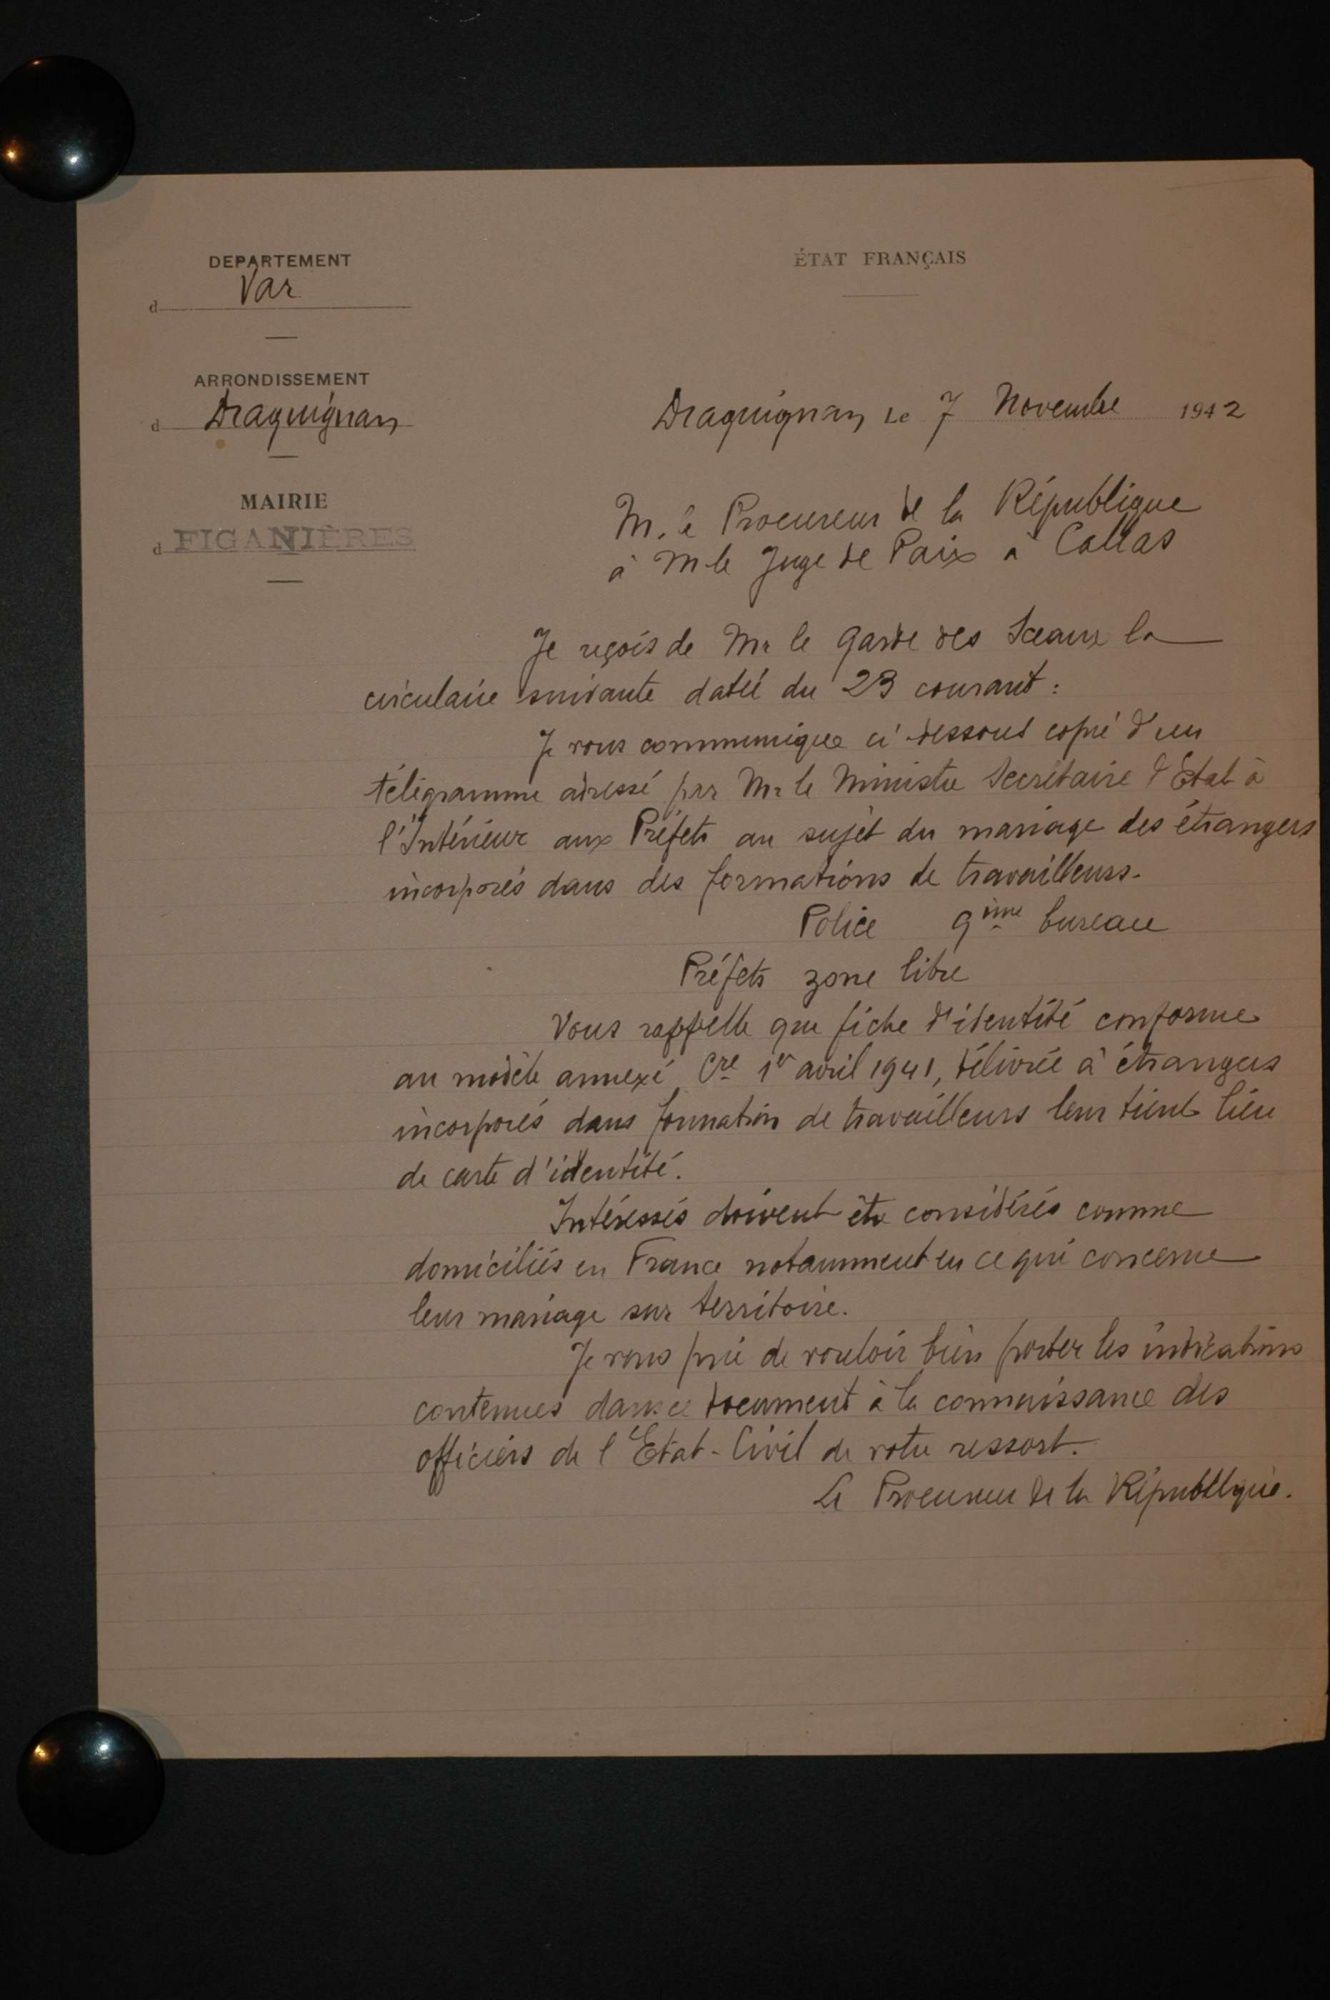 DEPARTEMENT
d Var
ARRONDISSEMENT
d Draguignan
MAIRIE
d FIGANIÈRES
ÉTAT FRANÇAIS
Draguignan Le 7 Novembre 1942
M. le Procureur de la République
à M. le Juge de Paix à Callas
Je reçois de Mr le Garde des Sceaux la
circulaire suivante daté du 23 courant :
Je vous communique ci dessous copie d'un
télégramme adressé par Mr le Ministre Secrétaire d'Etat à
l'Intérieur aux Préfets au sujet du mariage des étrangers
incorporés dans des formations de travailleurs.
Police 9ème bureau
Préfets zone libre
Vous rappelle que fiche d'identité conforme
au modèle annexé Cre 1er avril 1941, délivrée à étrangers
incorporés dans formation de travailleurs leur tient lieu
de carte d'identité.
Intéressés doivent être considérés comme
domiciliés en France notamment en ce qui concerne
leur mariage sur territoire.
Je vous prie de vouloir bien porter les indications
contenues dans ce document à la connaissance des
officiers de l'Etat-Civil de votre ressort.
Le Procureur de la République.